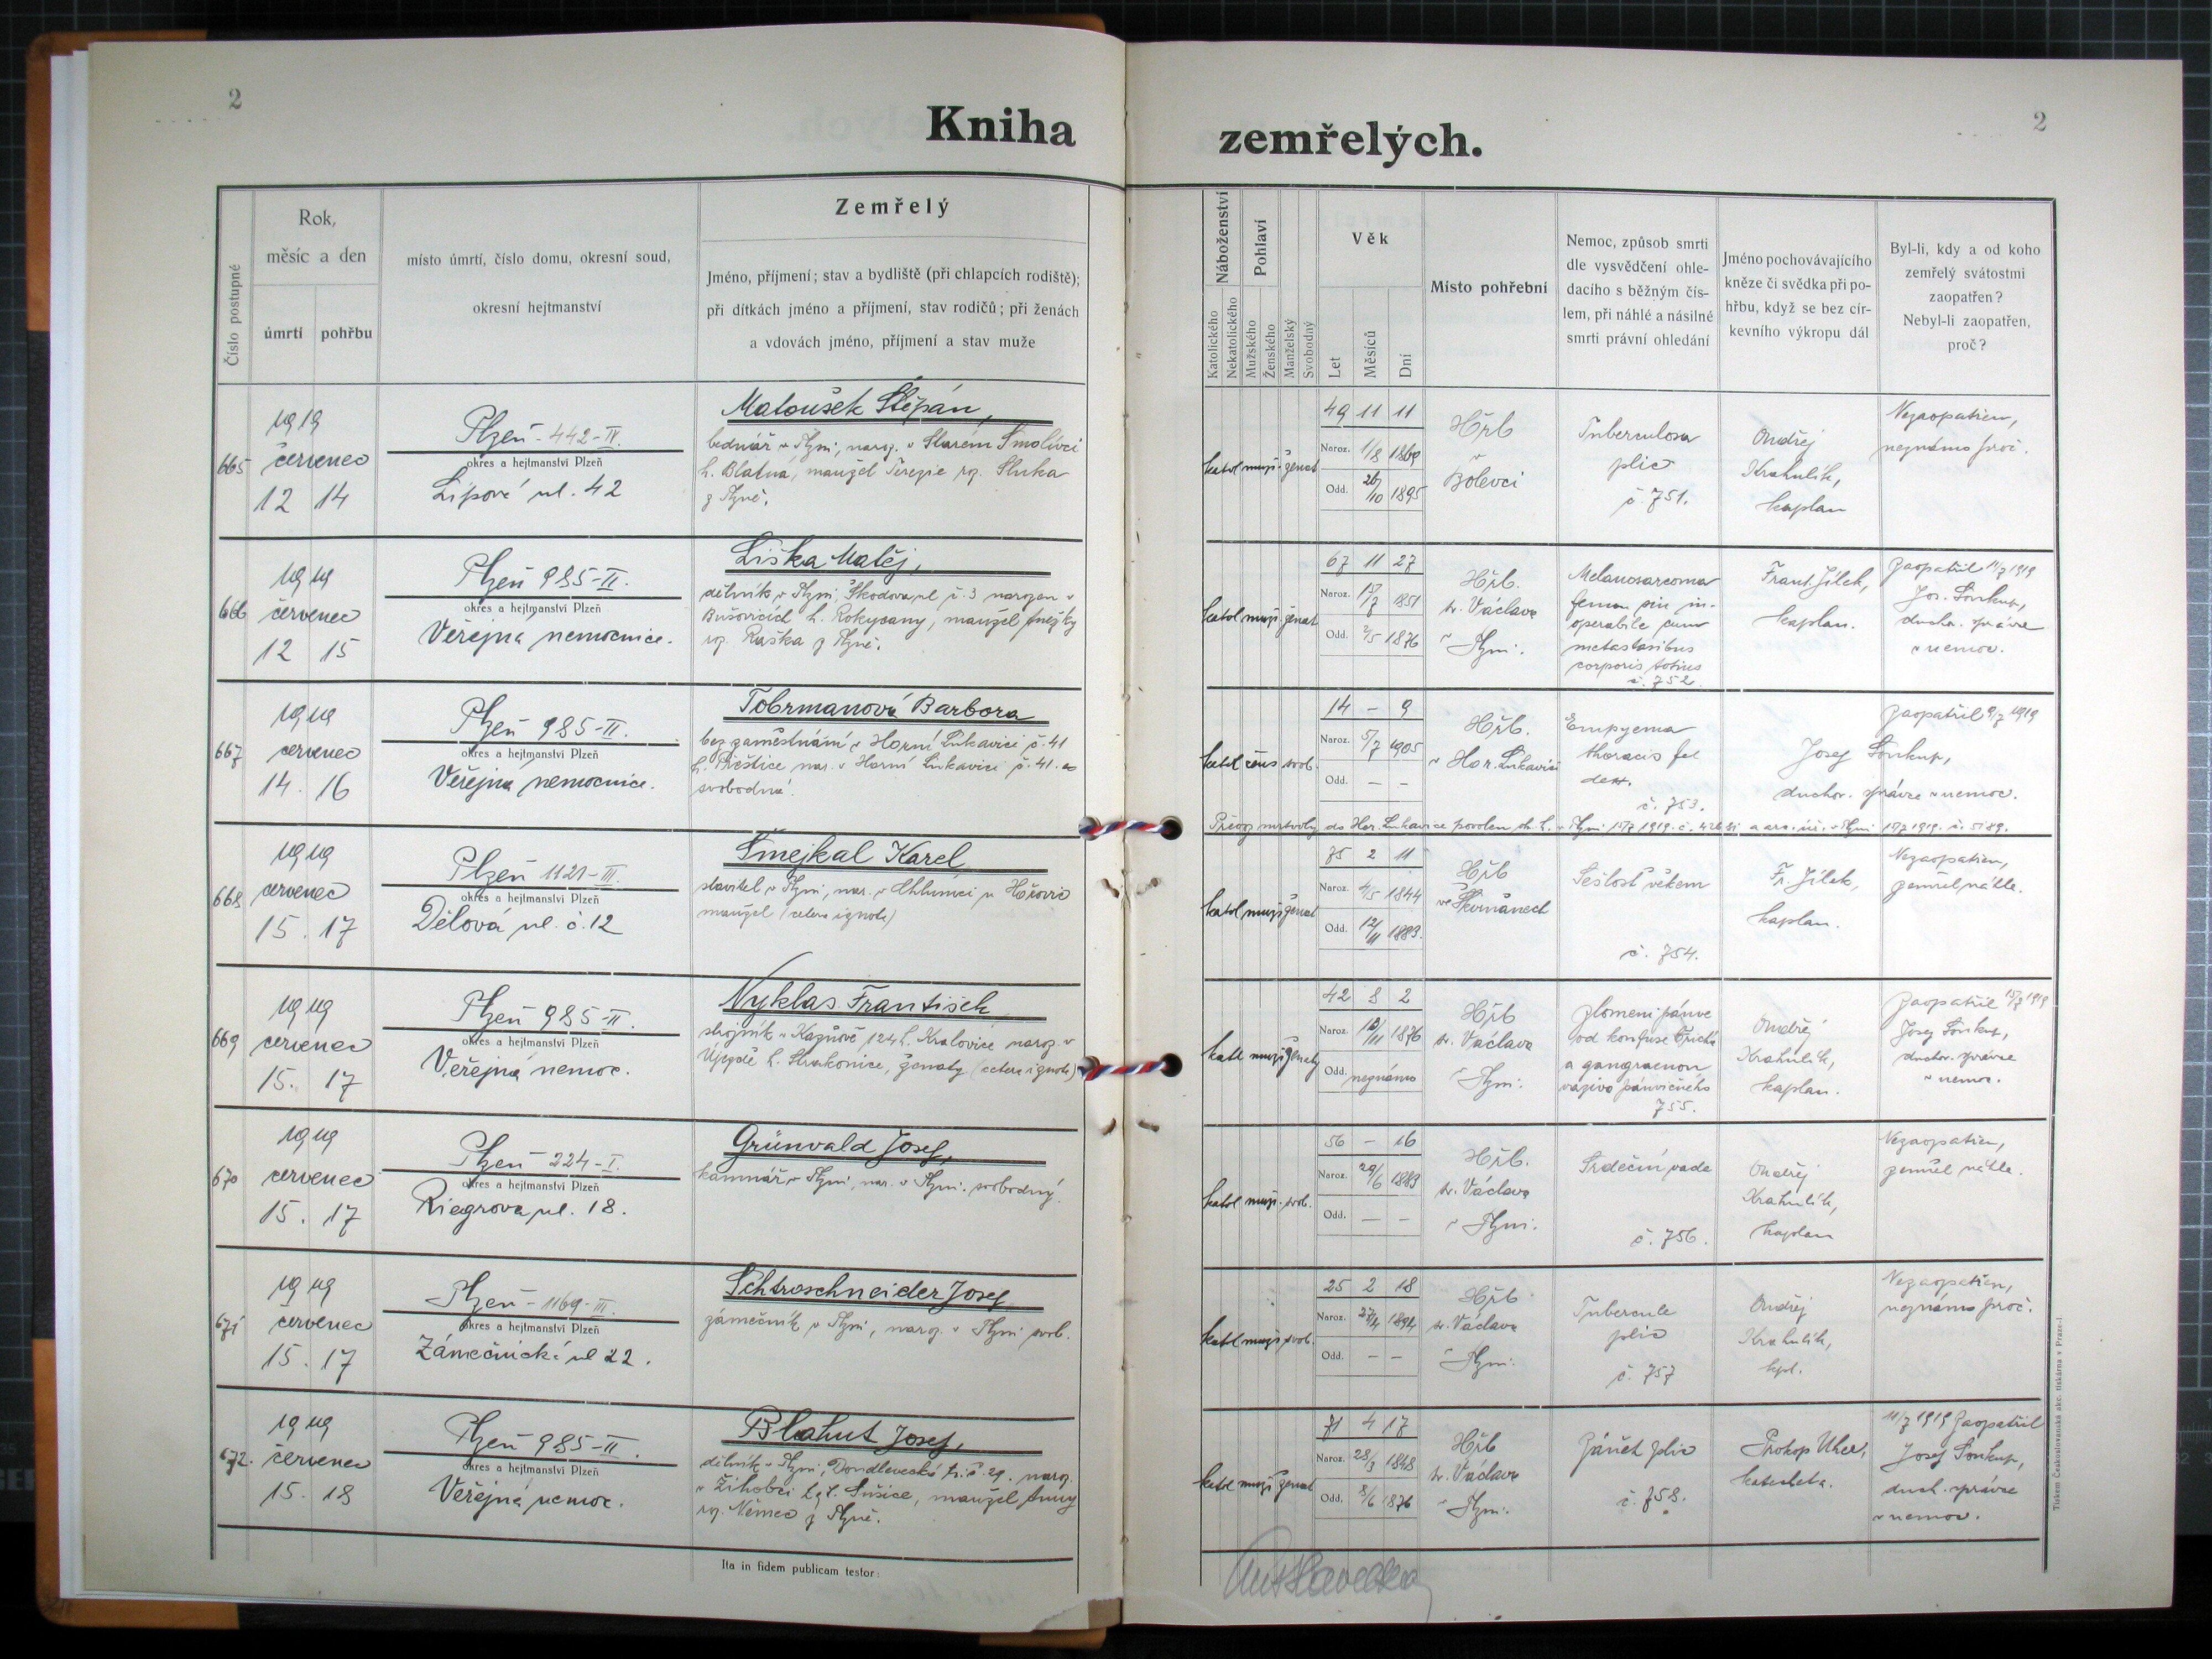 2
Kniha zemřelých.
2
Číslo postupné
Rok,
měsíc a den
úmrtí
pohřbu
místo úmrtí, číslo domu, okresní soud,
okresní hejtmanství
Zemřelý
Jméno, příjmení; stav a bydliště (při chlapcích rodiště);
při dítkách jméno a příjmení, stav rodičů; při ženách
a vdovách jméno, příjmení a stav muže
Náboženství
Katolického
Nekatolického
Pohlaví
Mužského
Ženského
Manželský
Svobodný
Věk
Let
Měsíců
Dní
Místo pohřební
Nemoc, způsob smrti
dle vysvědčení ohle-
dacího s běžným čís-
lem, při náhlé a násilné
smrti právní ohledání
Jméno pochovávajícího
kněze či svědka při po-
hřbu, když se bez cír-
kevního výkropu dál
Byl-li, kdy a od koho
zemřelý svátostmi
zaopatřen?
Nebyl-li zaopatřen,
proč?
665
1919
červenec
12 14
Plzeň - 442-IV.
okres a hejtmanství Plzeň
Lipová ul. 42
Matoušek Štěpán,
bednář v Plzni, naroz. v Starém Smolivci
h. Blatná, manžel Terezie roz. Sluka
z Plzně.
katol muž. ženat
49 11 11
Naroz. 1/8 1869
Odd. 26/10 1895
Hřb
v
Bolevci
Tuberculosa
plic
č 751.
Ondřej
Krahulík,
kaplan
Nezaopatřen,
neznámo proč.
666
1919
červenec
12 15
Plzeň 985-II.
okres a hejtmanství Plzeň
Veřejná nemocnice.
Liška Matěj,
dělník v Plzni, Škodova ul č. 3 narozen v
Bušovicích h. Rokycany, manžel Anežky
roz. Raška z Plzně.
katol muž. ženat
67 11 27
Naroz. 15/7 1851
Odd. 2/5 1876
Hřb.
sv. Václava
v Plzni.
Melanosarcoma
femor sin in-
operabile cum
metastasibus
corporis totius
č. 752.
Frant. Jílek,
kaplan.
Zaopatřil 11/7 1919
Jos. Soukup,
duchov. správce
v nemoc.
667
1919
červenec
14. 16
Plzeň 985-II.
okres a hejtmanství Plzeň
Veřejná nemocnice.
Tobrmanová Barbora
bez zaměstnání v Horní Lukavici č. 41
h. Přeštice nar. v Horní Lukavici č. 41.
svobodná.
katol žens svob.
14 - 9
Naroz. 5/7 1905
Odd. - -
Hřb.
v Hor. Lukavici
Empyema
thoracis
dext.
č. 753.
Josef Soukup,
duchov. správce v nemoc.
Zaopatřil 9/7 1919
Převoz mrtvoly do Hor. Lukavice povolen v Plzni 15/7 1919. v Plzni 15/7 1919. č. 5189.
668
1919
červenec
15. 17
Plzeň 1121-III.
okres a hejtmanství Plzeň
Dělová ul. č. 12
Šmejkal Karel
stavitel v Plzni, nar. v Chlumci u Hořovic
manžel (cetera ignota)
katol muž. ženat
75 2 11
Naroz. 4/5 1844
Odd. 12/11 1883.
Hřb
ve Skvrňanech
Sešlost věkem
č. 754.
Fr. Jílek,
kaplan.
Nezaopatřen,
zemřel náhle.
669
1919
červenec
15. 17
Plzeň 985-II.
okres a hejtmanství Plzeň
Veřejná nemoc.
Nyklas František
strojník v Kaznově 124 h. Kralovice naroz. v
Újezdě h. Strakonice, ženatý (cetera ignota)
katl muž. ženatý
42 8 2
Naroz. 13/11 1876
Odd. neznámo
Hřb
sv. Václava
v Plzni.
zlomení pánve
od konfuse břicha
a gangraenou
vaziva pánvičného
755.
Ondřej
Krahulík,
kaplan.
Zaopatřil 15/7 1919
Josef Soukup,
duchov. správce
v nemoc.
670
1919
červenec
15. 17
Plzeň - 224-I.
okres a hejtmanství Plzeň
Riegrova ul. 18.
Grünvald Josef,
kamnář v Plzni, nar. v Plzni. svobodný.
katol muž. svob.
56 - 16
Naroz. 29/6 1883
Odd. - -
Hřb.
sv. Václava
v Plzni.
Srdeční vada
č. 756.
Ondřej
Krahulík,
kaplan
Nezaopatřen,
zemřel náhle.
671
1919
červenec
15. 17
Plzeň - 1169-III.
okres a hejtmanství Plzeň
Zámečnická ul 22.
Schtroschneider Josef
zámečník v Plzni, naroz. v Plzni svob.
katol muž. svob.
25 2 18
Naroz. 27/4 1894
Odd. - -
Hřb
sv. Václava
v Plzni.
Tubercule
plic
č. 757
Ondřej
Krahulík,
kpl.
Nezaopatřen,
neznámo proč.
672.
1919
červenec
15. 18
Plzeň 985-II.
okres a hejtmanství Plzeň
Veřejná nemoc.
Blahut Josef,
dělník v Plzni, Doudlevecká tř. č. 29. naroz.
v Žihobci h. Sušice, manžel Anny
roz. Němec z Plzně.
katol muž. ženat
71 4 17
Naroz. 28/3 1848
Odd. 8/6 1876
Hřb
sv. Václava
v Plzni.
Zánět plic
č. 758.
Prokop Uher,
katecheta.
11/7 1919 Zaopatřil
Josef Soukup,
duch. správce
v nemoc.
Ita in fidem publicam testor:
Tiskem Československá akc. tiskárna v Praze-I